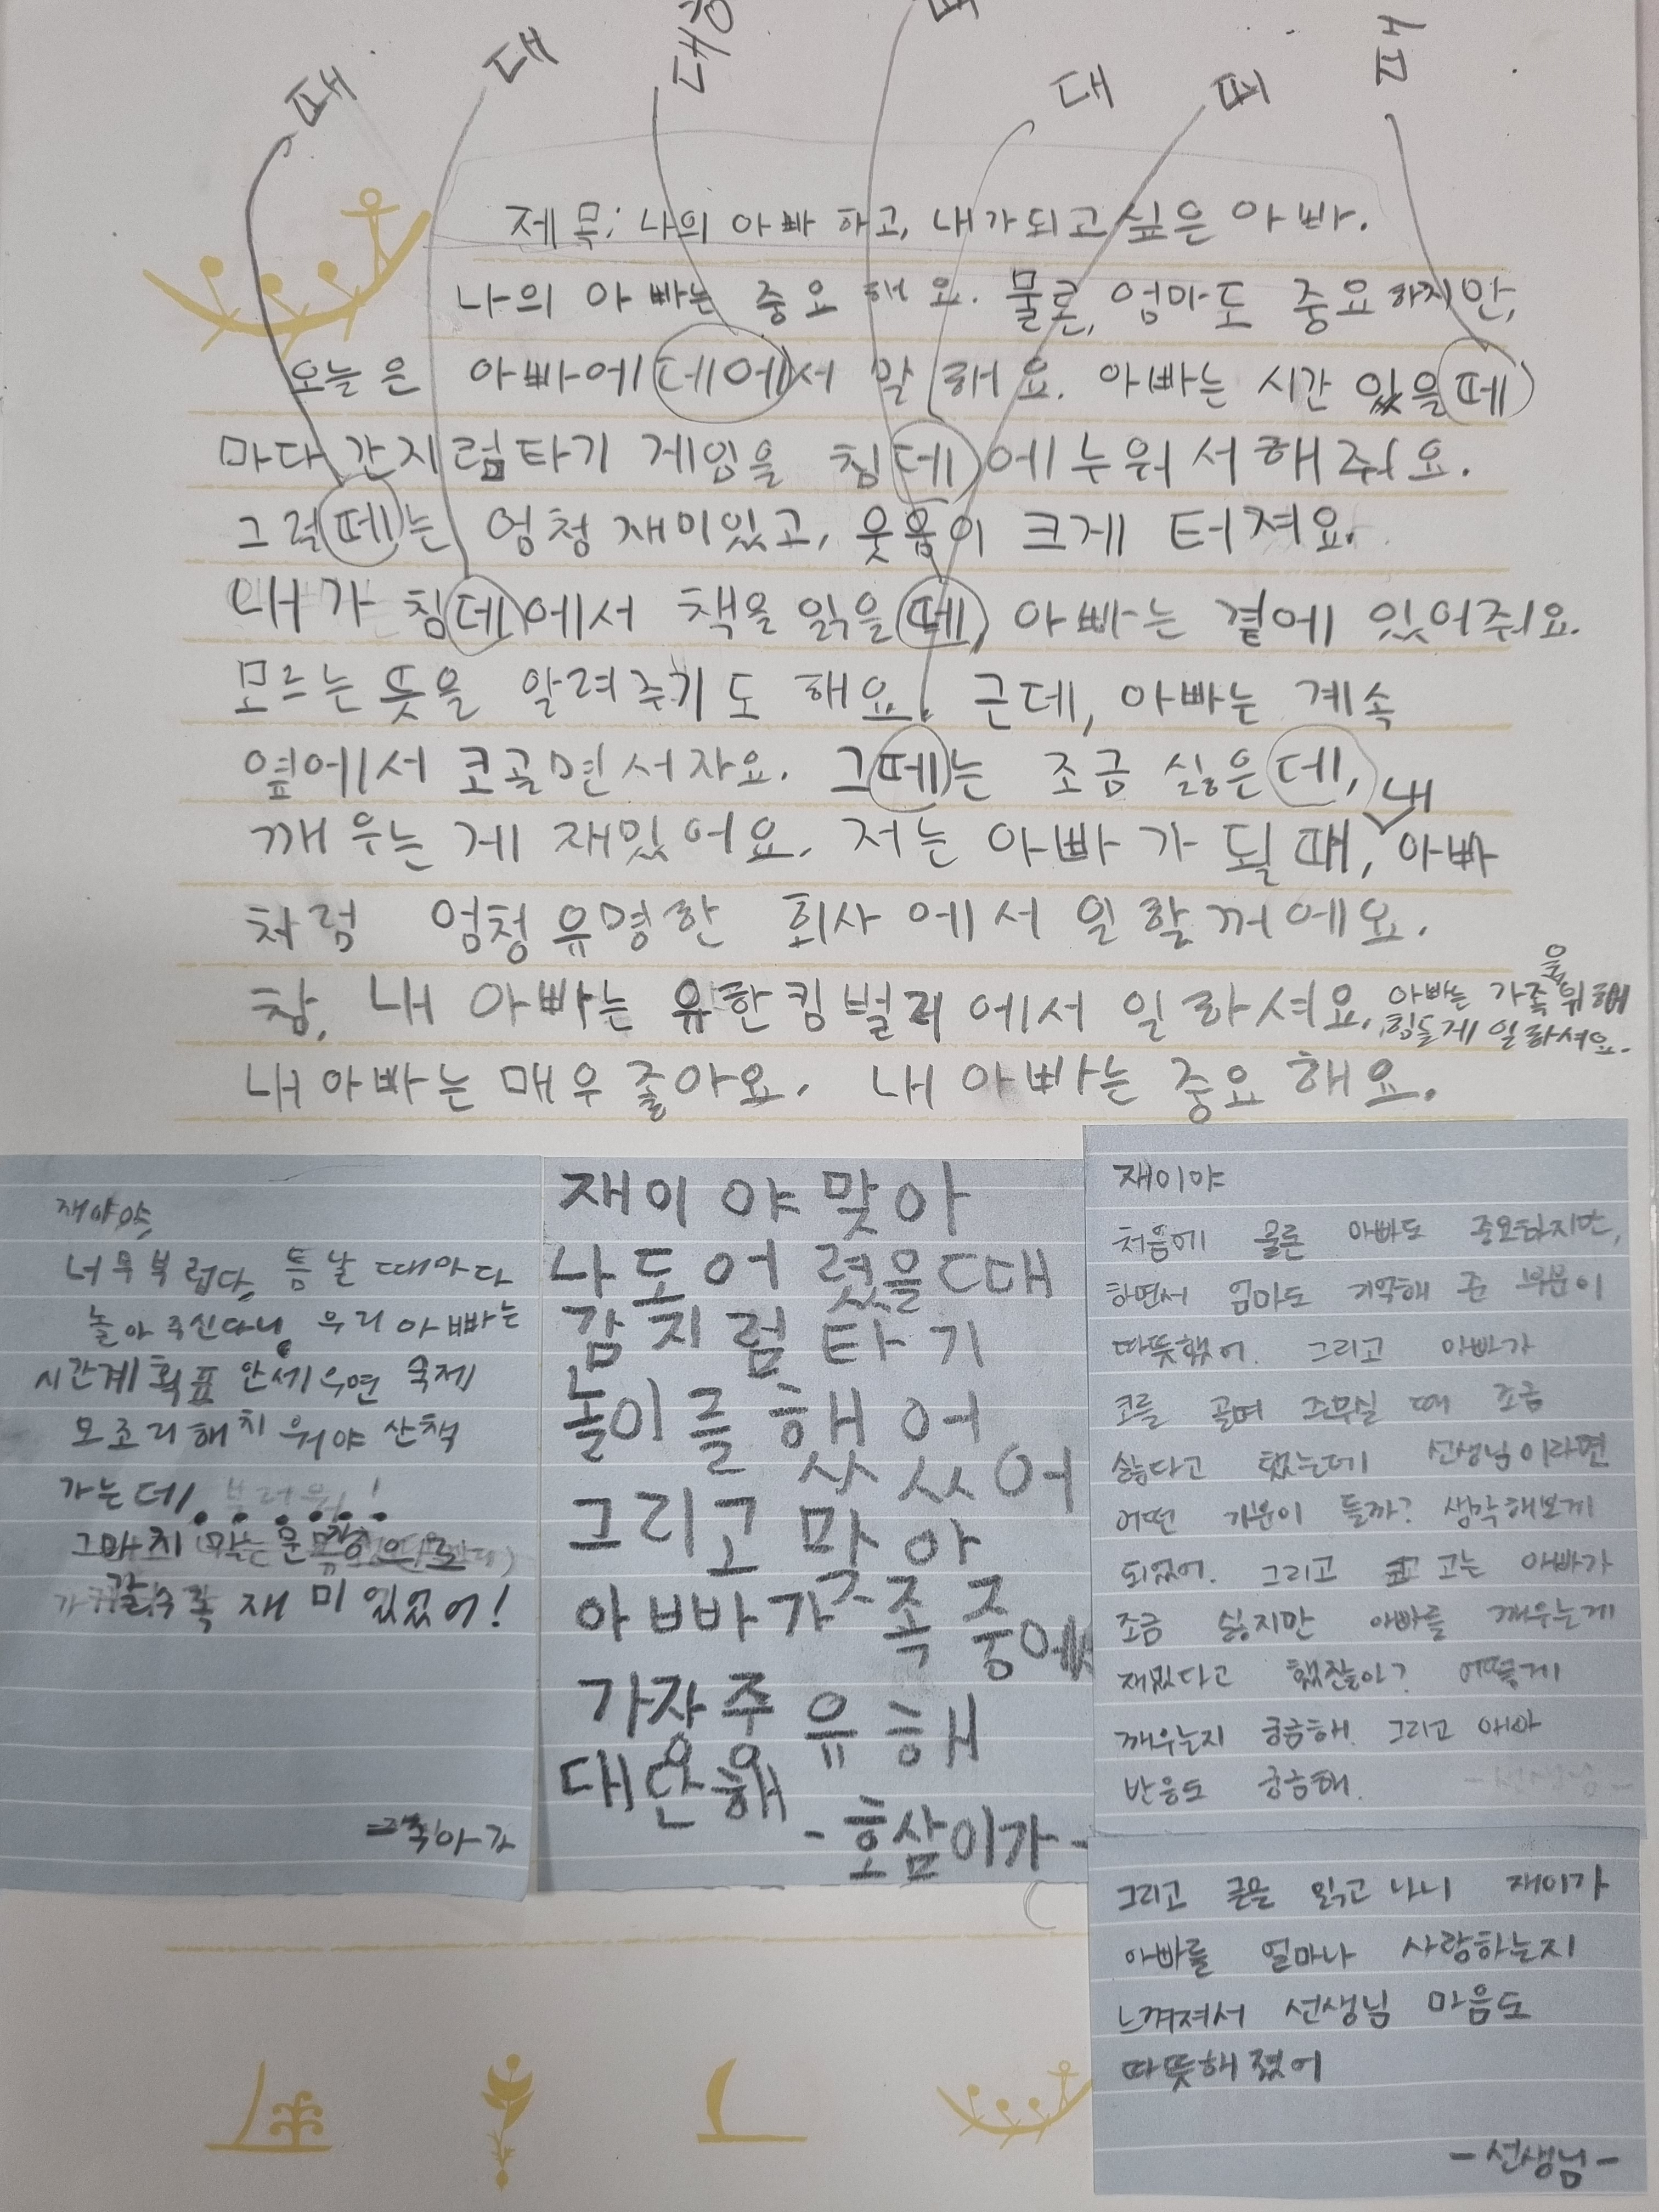 때
대
대
때
때
제목: 나의 아빠 하고, 내가되고 싶은 아빠.
나의 아빠는 중요 해 요. 물론, 엄마도 중요하지만,
오늘은 아빠에 데에서 말 해요. 아빠는 시간 있을 떼
마다 간지럼타기 게임을 침데에 누워서 해 줘요.
그럴떼는 엄청 재미있고, 웃음이 크게 터져요.
내가 침데에서 책을 읽을 떼, 아빠는 곁에 있어줘요.
모르는 뜻을 알려주기도 해요. 근데, 아빠는 계속
옆에서 코골면서자요. 그떼는 조금 싫은데,
내
깨우는 게 재밌어요. 저는 아빠가 될때, 아빠
처럼 엄청 유명한 회사에서 일 할꺼에요.
참, 내 아빠는 유한킴벌리에서 일 하셔요. 아빠는 가족을 위해
힘들게 일하셔요.
내 아빠는 매우 좋아요. 내 아빠는 중요 해요.
너무부럽다, 틈날 때마다
놀아주신다니, 우리 아빠는
시간계획표 안세우면 숙제
모조리해치워야 산책
가는데, 부러워!
갈수록 재미있었어!
재이야맞아
나도어렸을때
감지럼타기
놀이를했어
어
그리고 맞아
아빠가족중에
가장중유해
대단해
-호삼이가-
재이야
처음에 물론 아빠도 중요하지만,
하면서 엄마도 기억해 준 부분이
따뜻했어. 그리고 아빠가
코를 골며 주무실 때 조금
싫다고 했는데 선생님이라면
어떤 기분이 들까? 생각해보게
되었어. 그리고 코 고는 아빠가
조금 싫지만 아빠를 깨우는게
재밌다고 했잖아? 어떻게
깨우는지 궁금해. 그리고 아빠
반응도 궁금해.
그리고 글을 읽고 나니 재이가
아빠를 얼마나 사랑하는지
느껴져서 선생님 마음도
따뜻해 졌어
-선생님-